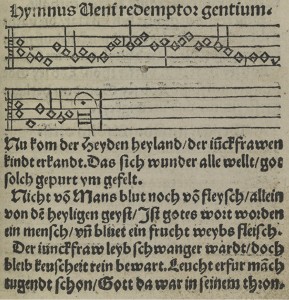 Hymnus Veni redemptor gentium.
Nu kom der Heyden heyland / der iũckfrawen
kindt erkandt. Das sich wunder alle wellt / got
solch gepurt ym gefelt.
Nicht võ Mans blut noch võ fleysch / allein
von dẽ heyligen geyst / Ist gotes wort worden
ein mensch / vñ bluet ein frucht weybs fleisch.
Der iunckfraw leyb schwanger wardt / doch
bleib keuscheit rein bewart. Leucht erfur mãch
tugendt schon / Gott da war in seinem thron.